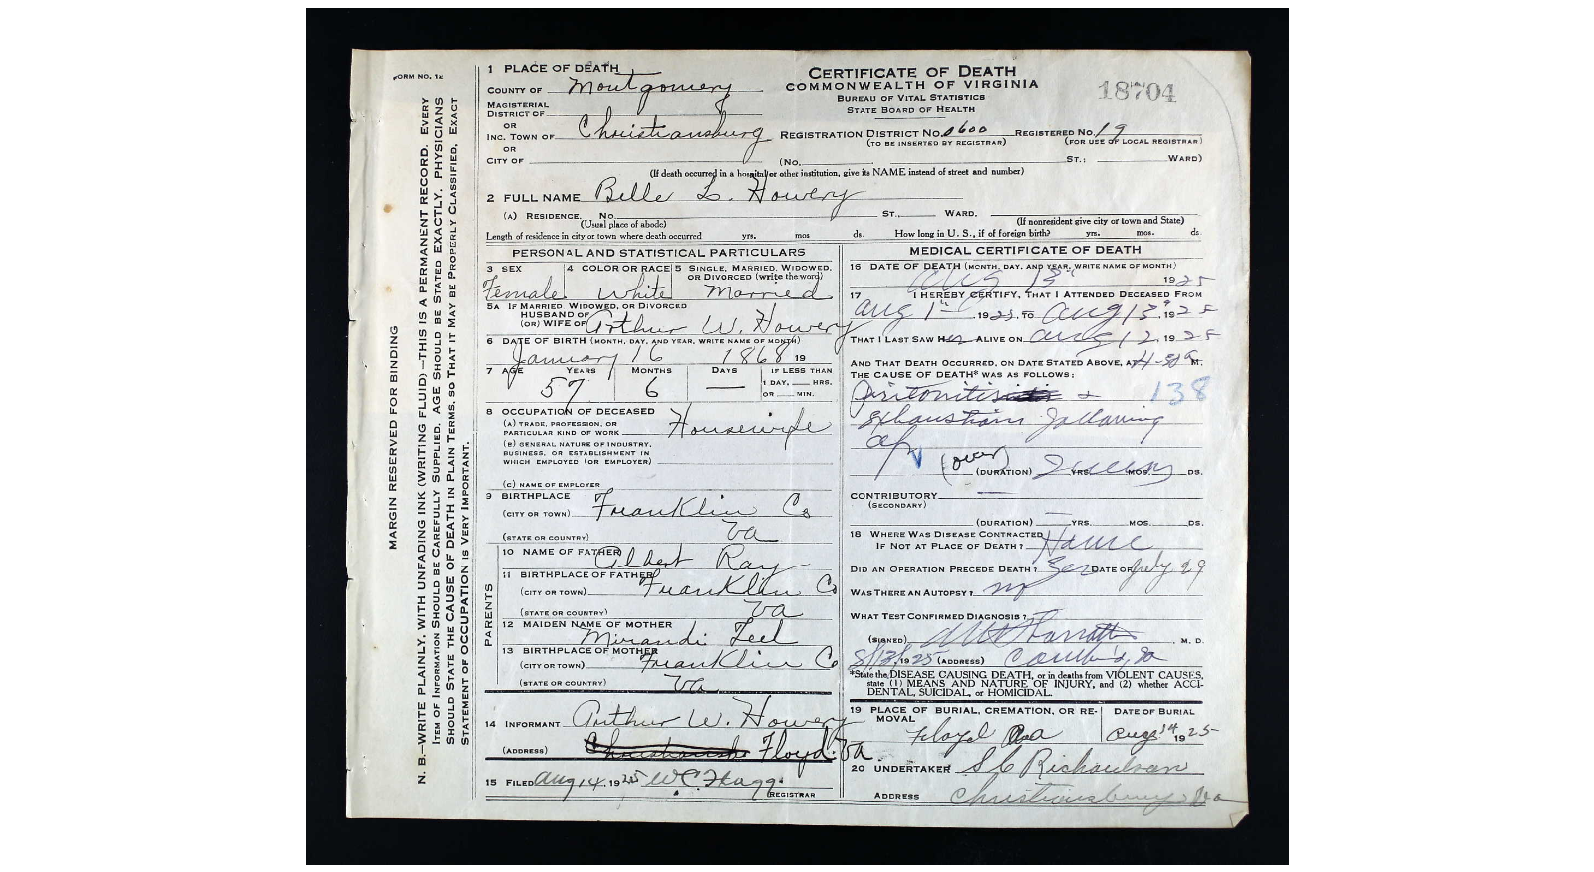 FORM NO. 12
MARGIN RESERVED FOR BINDING
N. B.—WRITE PLAINLY, WITH UNFADING INK (WRITING FLUID)—THIS IS A PERMANENT RECORD. EVERY
ITEM OF INFORMATION SHOULD BE CAREFULLY SUPPLIED. AGE SHOULD BE STATED EXACTLY. PHYSICIANS
SHOULD STATE THE CAUSE OF DEATH IN PLAIN TERMS, SO THAT IT MAY BE PROPERLY CLASSIFIED. EXACT
STATEMENT OF OCCUPATION IS VERY IMPORTANT.
1 PLACE OF DEATH
COUNTY OF Montgomery
MAGISTERIAL
DISTRICT OF
OR
INC. TOWN OF Christiansburg
OR
CITY OF
CERTIFICATE OF DEATH
COMMONWEALTH OF VIRGINIA
BUREAU OF VITAL STATISTICS
STATE BOARD OF HEALTH
18704
REGISTRATION DISTRICT NO. 0600 REGISTERED NO. 19
(TO BE INSERTED BY REGISTRAR) (FOR USE OF LOCAL REGISTRAR)
(No. ST.; WARD)
(If death occurred in a hospital or other institution, give its NAME instead of street and number)
2 FULL NAME Belle L. Howery
(A) RESIDENCE. No. ST., WARD.
(Usual place of abode) (If nonresident give city or town and State)
Length of residence in city or town where death occurred yrs. mos ds. How long in U. S., if of foreign birth? yrs. mos. ds.
PERSONAL AND STATISTICAL PARTICULARS
3 SEX 4 COLOR OR RACE 5 SINGLE, MARRIED, WIDOWED, OR DIVORCED (write the word)
Female White Married
5A IF MARRIED WIDOWED, OR DIVORCED
HUSBAND OF
(OR) WIFE OF Arthur W. Howery
6 DATE OF BIRTH (MONTH, DAY, AND YEAR, WRITE NAME OF MONTH)
January 16 1868 19
7 AGE YEARS MONTHS DAYS IF LESS THAN
1 DAY, HRS.
OR MIN.
57 6 —
8 OCCUPATION OF DECEASED
(A) TRADE, PROFESSION, OR
PARTICULAR KIND OF WORK Housewife
(B) GENERAL NATURE OF INDUSTRY,
BUSINESS, OR ESTABLISHMENT IN
WHICH EMPLOYED (OR EMPLOYER)
(C) NAME OF EMPLOYER
9 BIRTHPLACE
(CITY OR TOWN) Franklin Co
(STATE OR COUNTRY) Va
PARENTS
10 NAME OF FATHER Albert Ray
11 BIRTHPLACE OF FATHER
(CITY OR TOWN) Franklin Co
(STATE OR COUNTRY) Va
12 MAIDEN NAME OF MOTHER
Mirandi
13 BIRTHPLACE OF MOTHER
(CITY OR TOWN) Franklin Co
(STATE OR COUNTRY) Va
14 INFORMANT Arthur W. Howery
(ADDRESS) Floyd Va.
15 FILED Aug 14, 1925 W.C. Flagg
REGISTRAR
MEDICAL CERTIFICATE OF DEATH
16 DATE OF DEATH (MONTH, DAY, AND YEAR, WRITE NAME OF MONTH)
Aug 13 1925
17 I HEREBY CERTIFY, THAT I ATTENDED DECEASED FROM
Aug 1st, 1925, TO Aug 13, 1925
THAT I LAST SAW Her ALIVE ON Aug 12, 1925
AND THAT DEATH OCCURRED, ON DATE STATED ABOVE, AT M.
THE CAUSE OF DEATH* WAS AS FOLLOWS:
Peritonitis & 138
Exhaustion following
op
(over) (DURATION) YRS. MOS. DS.
CONTRIBUTORY
(SECONDARY)
(DURATION) YRS. MOS. DS.
18 WHERE WAS DISEASE CONTRACTED
IF NOT AT PLACE OF DEATH? Home
DID AN OPERATION PRECEDE DEATH? Yes DATE OF July 29
WAS THERE AN AUTOPSY? no
WHAT TEST CONFIRMED DIAGNOSIS?
(SIGNED) M. D.
8/13/1925 (ADDRESS)
*State the DISEASE CAUSING DEATH, or in deaths from VIOLENT CAUSES,
state (1) MEANS AND NATURE OF INJURY, and (2) whether ACCI-
DENTAL, SUICIDAL, or HOMICIDAL.
19 PLACE OF BURIAL, CREMATION, OR RE-
MOVAL DATE OF BURIAL
Floyd Aug 14 1925
20 UNDERTAKER S C Richardson
ADDRESS Christiansburg Va